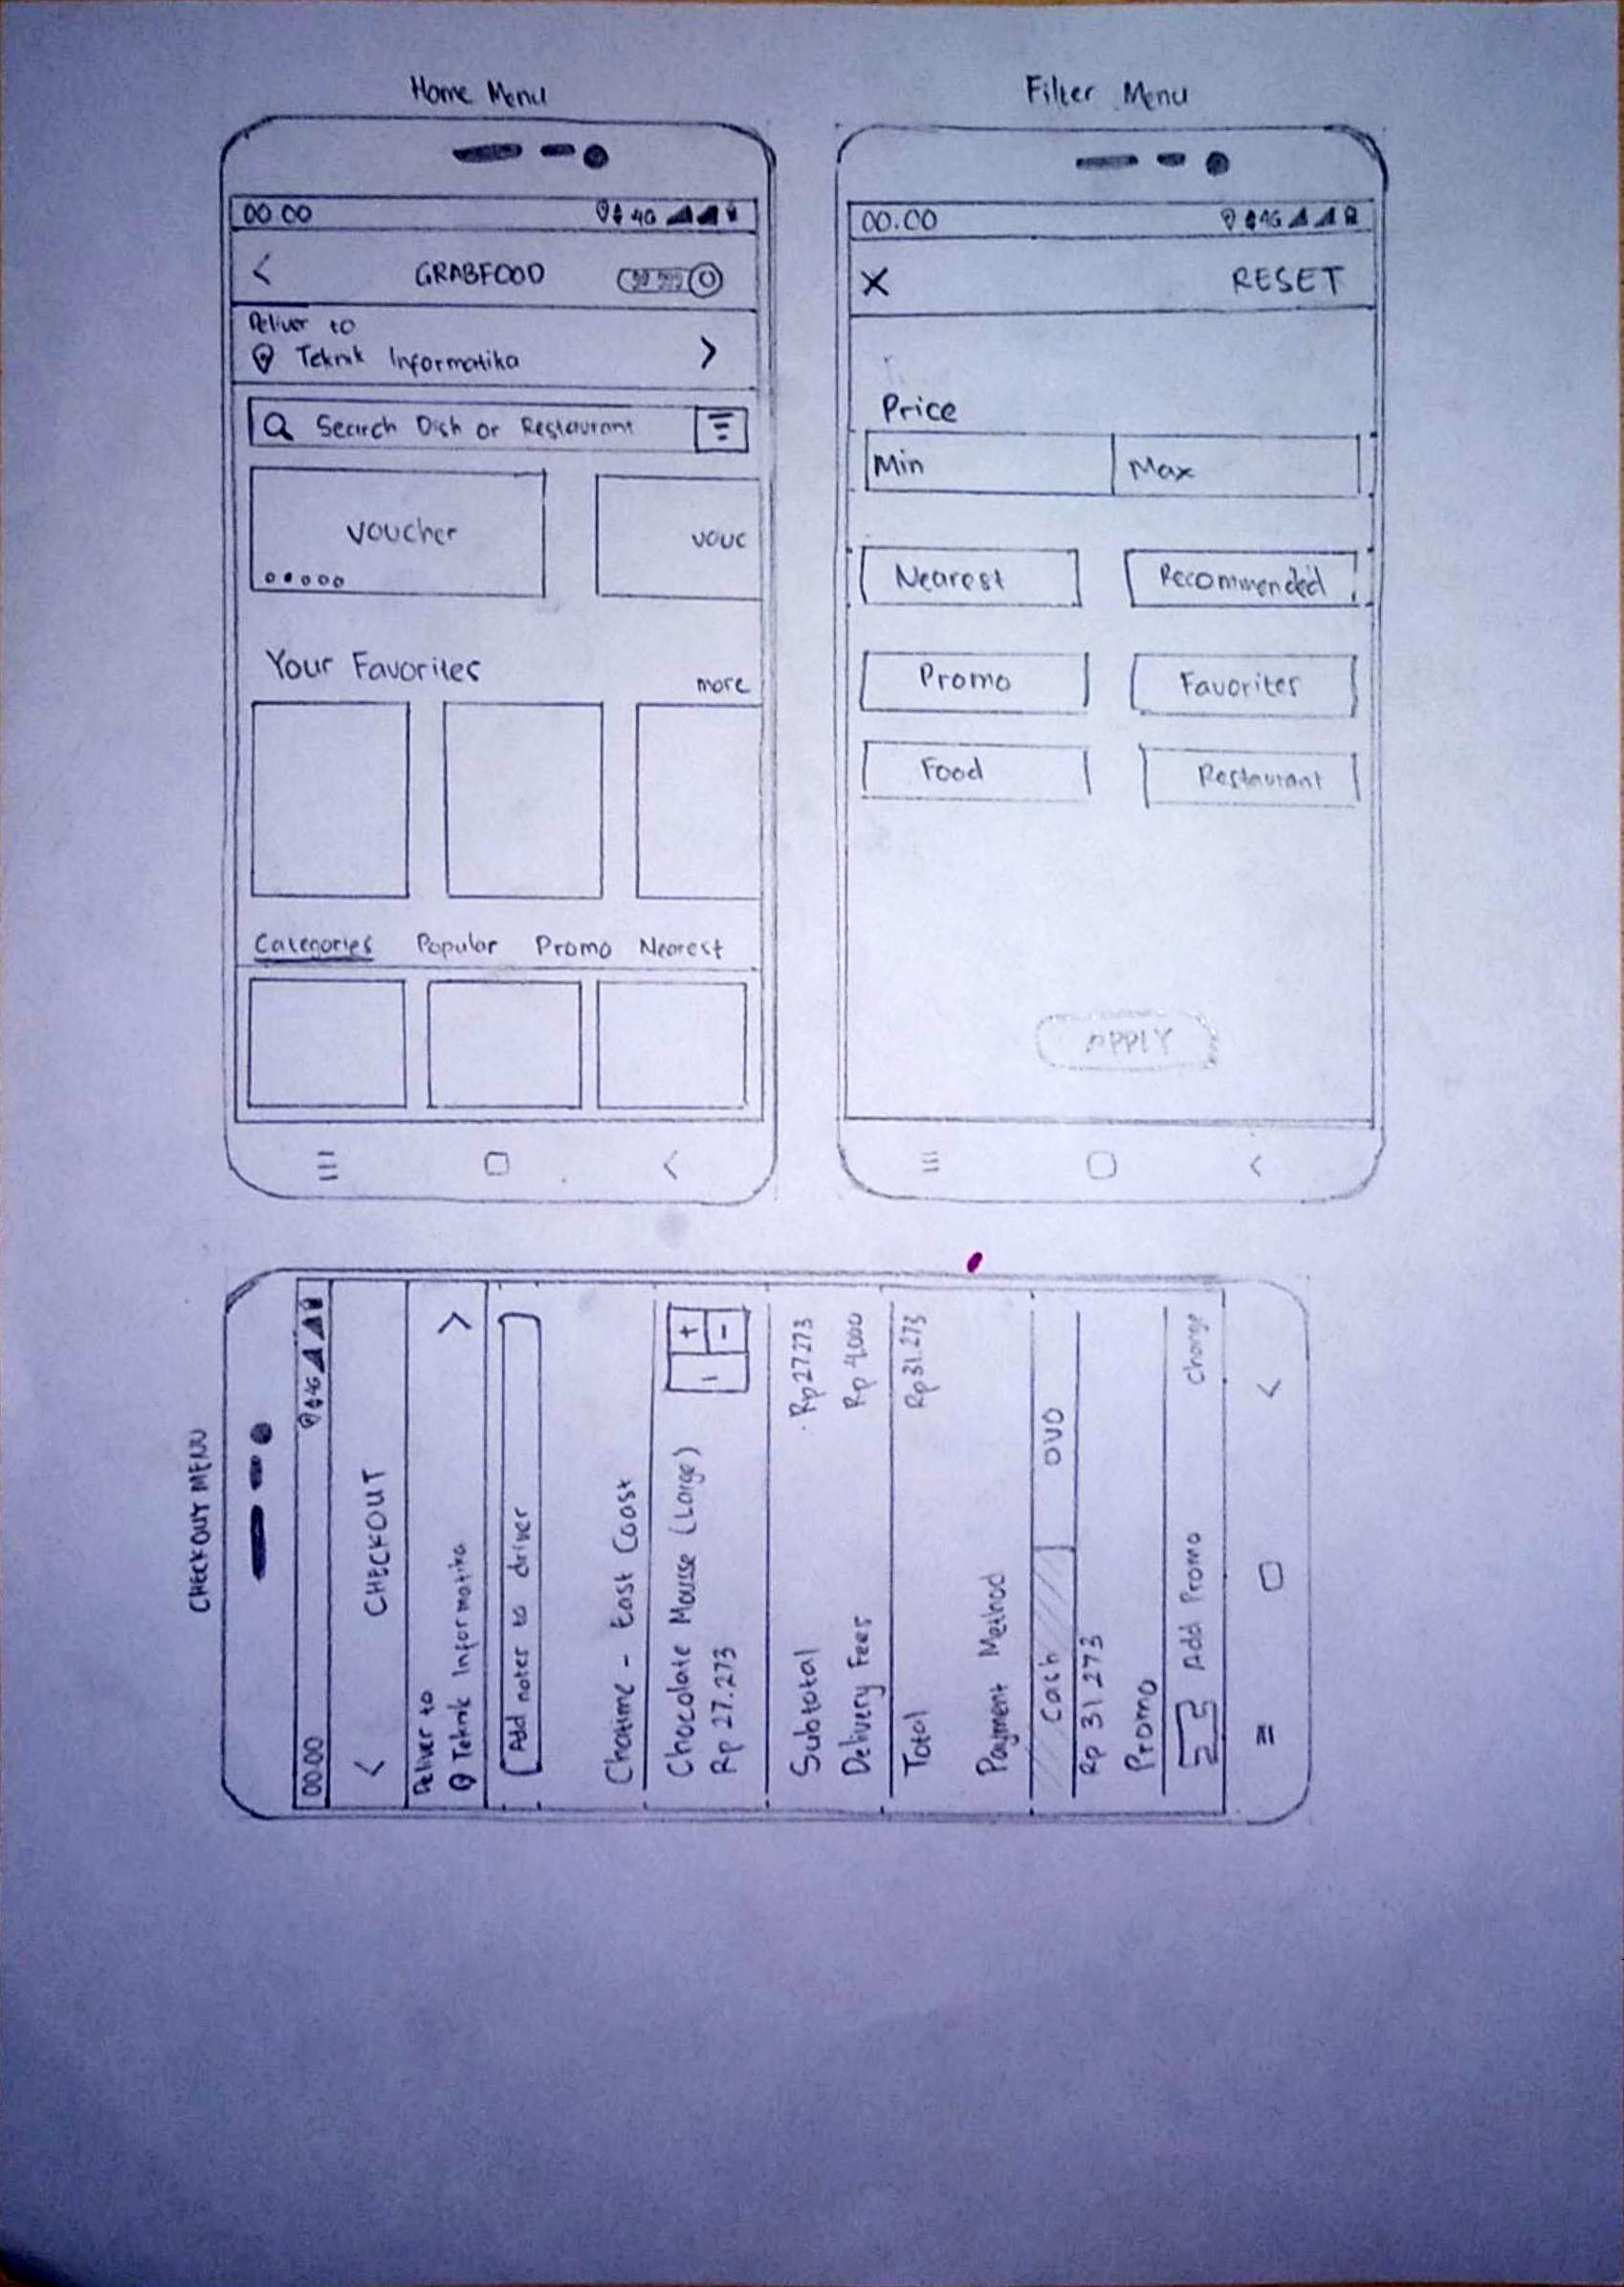 Home Menu
00 00 4G
< GRABFOOD
Deliver to
Teknik Informatika >
Search Dish or Restaurant
Voucher
vouc
Your Favorites
more
Categories Popular Promo Nearest
Filter Menu
00.00 4G
X RESET
Price
Min Max
Nearest Recommended
Promo Favorites
Food Restaurant
APPLY
CHECKOUT MENU
00.00 4G
< CHECKOUT
Deliver to
Teknik Informatika >
Add notes to driver
Chatime - East Coast
Chocolate Mousse (Large)
Rp 27.273
1 + -
Subtotal Rp 27273
Delivery Fees Rp 4.000
Total Rp 31.273
Payment Method
Cash OVO
Rp 31 273
Promo
Add Promo change